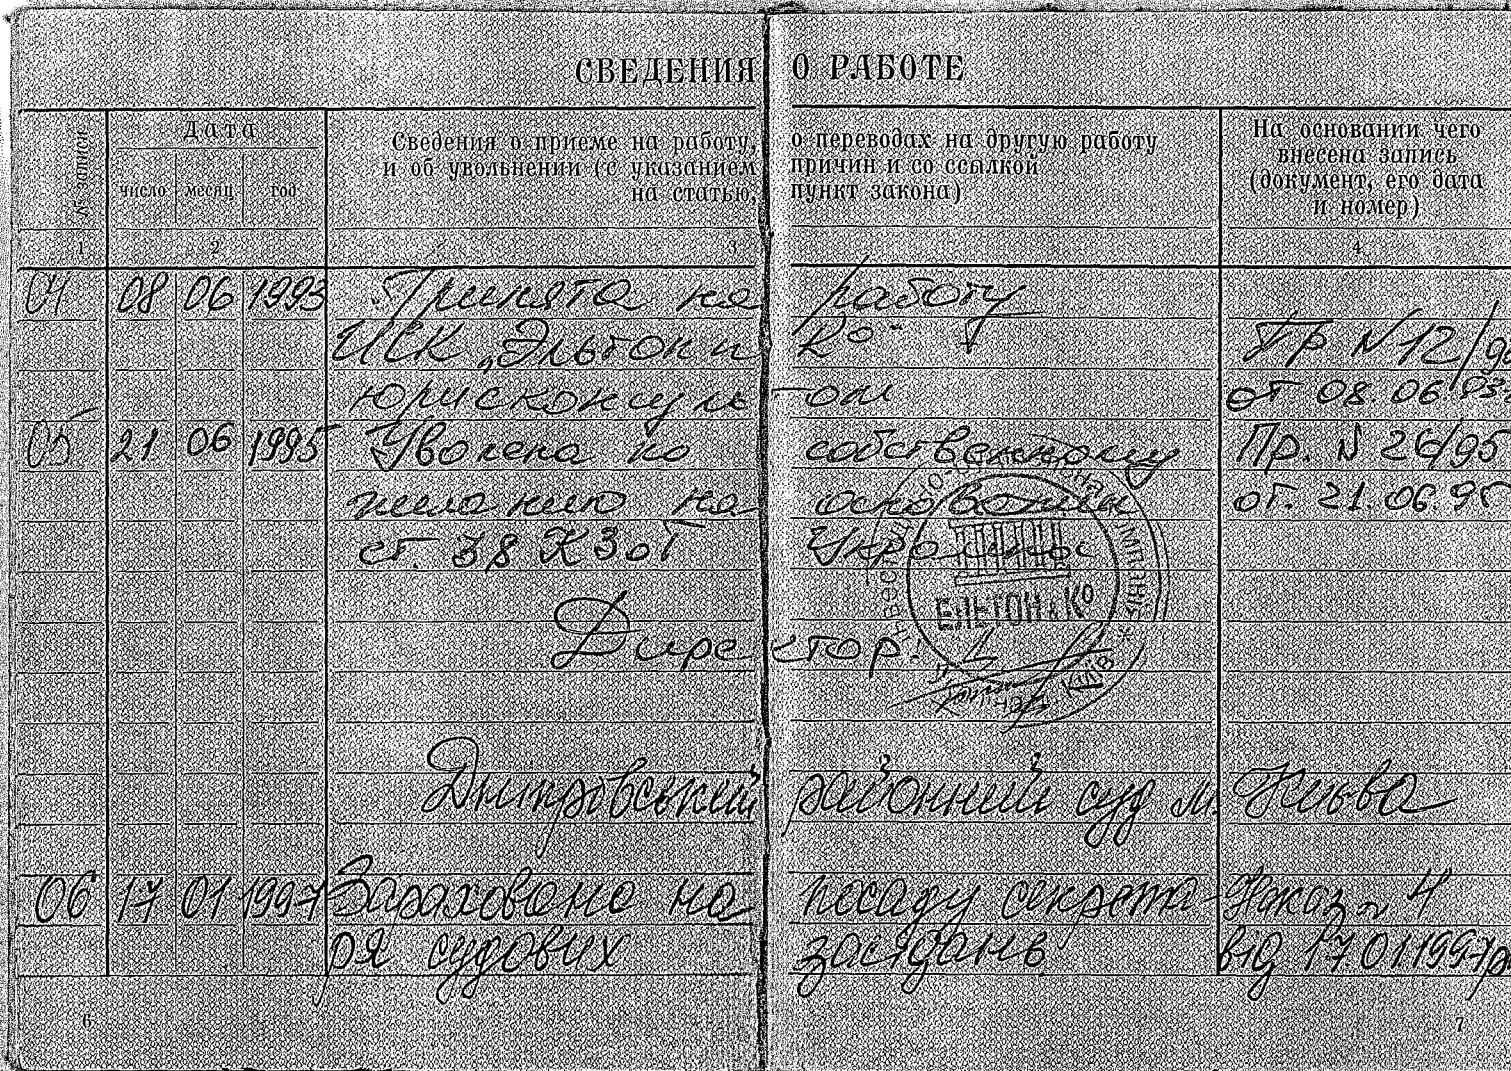 СВЕДЕНИЯ О РАБОТЕ
№ записи
Дата
число месяц год
Сведения о приеме на работу, о переводах на другую работу
и об увольнении (с указанием причин и со ссылкой
на статью, пункт закона)
На основании чего
внесена запись
(документ, его дата
и номер)
1 2 3 4
04 08 06 1993 Принята на работу
ИСК „Эльтон и Ко" Пр N 12/93
юрисконсультом от 08.06.93
05 21 06 1995 Уволена по собственному Пр. N 26/95
желанию на основании от. 21.06.95
ст. 38 КЗоТ Украины
ЕЛЬТОН & Ко
Київ
Директор.
Дніпровський районний суд м. Києва
06 17 01 1997 Зарахована на посаду секрета- Наказ N 4
ря судових засідань від 17.01.1997р
6 7